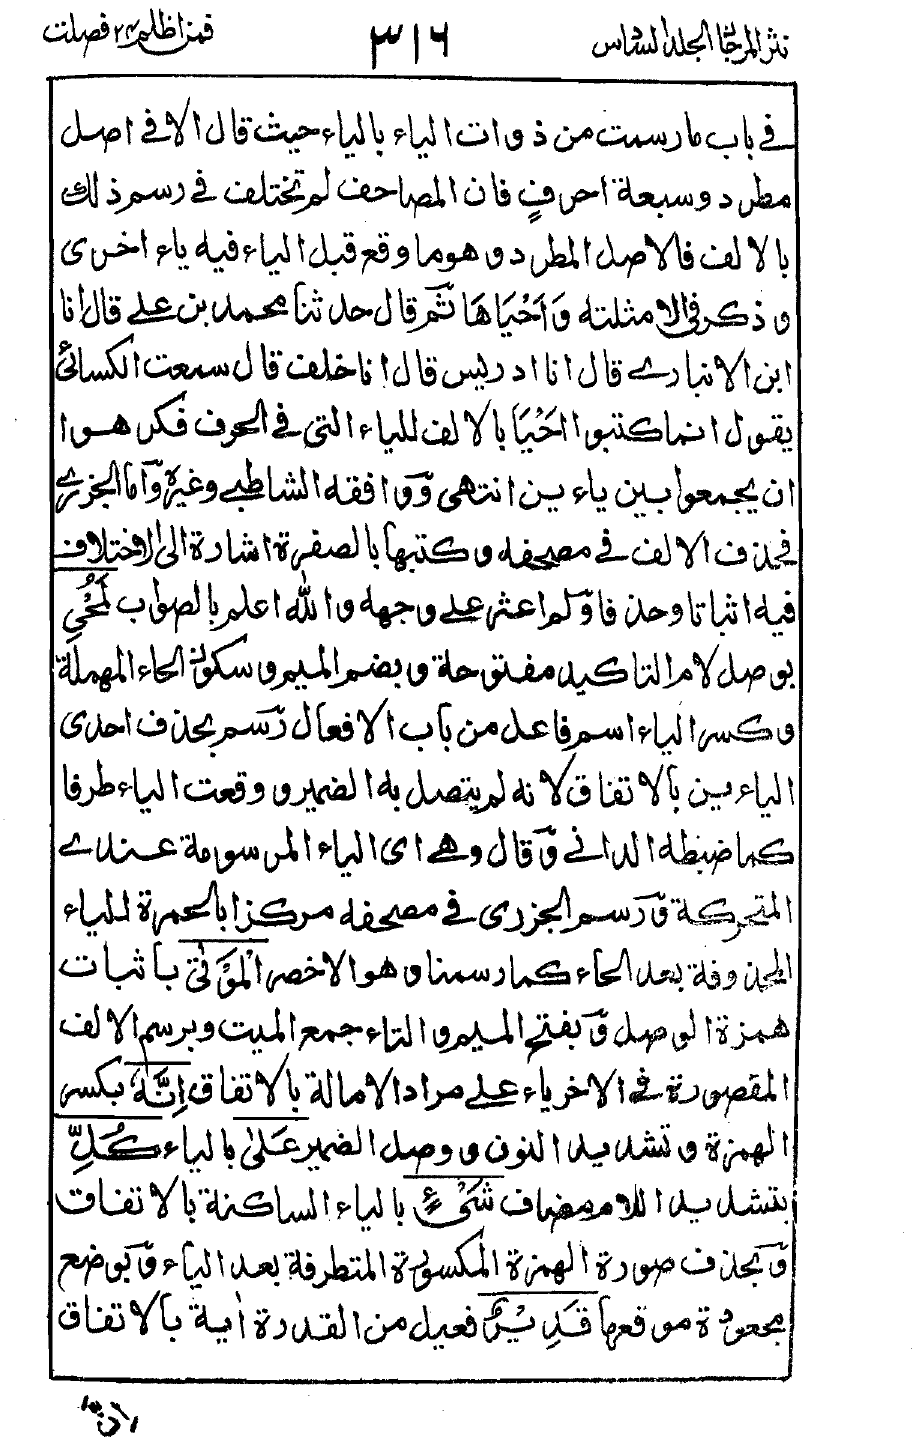 نثر المرجان الجلد السادس
٣١٦
فمن اظلم ٢٤ فصلت
في باب ما رسمت من ذوات الياء بالياء حيث قال الا في اصل
مطرد وسبعة احرفٍ فان المصاحف لم تختلف في رسم ذلك
بالالف فالاصل المطرد وهو ما وقع قبل الياء فيه ياء اخرى
وذكر في الامثلته وَاَحْيَاهَا ثم قال حدثنا محمد بن علے قال انا
ابن الانبارے قال انا ادريس قال انا خلف قال سمعت الكسائیّ
يقول انما كتبوا اَحْيَا بالالف للياء التي في الحرف فكرهوا
ان يجمعوا بين ياءين انتهى وَوافقه الشاطبے وغيره وَاما الجزرے
فحذف الالف في مصحفه وكتبها بالصفرة اشارة الى الاختلاف
فيه اثباتا وحذفا وَلم اعثر علے وجهه والله اعلم بالصواب لَمُحْيِ
بوصل لام التاكيد مفتوحة وبضم الميم وسكون الحاء المهملة
وكسر الياء اسم فاعل من باب الافعال رَسم بحذف احدى
الياءين بالاتفاق لانه لم يتصل به الضمير ووقعت الياء طرفا
كما ضبطه الدانے وَقال وهے اى الياء المرسومة عندے
المتحركة وَرسم الجزرى في مصحفه مركزا بالحمرة للياء
المحذوفة بعد الحاء كما رسمنا وهو الاخصر الْمَوْتٰى باثبات
همزة الوصل وَبفتح الميم والتاء جمع الميت وبرسم الالف
المقصورة في الاخر ياء علے مراد الامالة بالاتفاق اِنَّهٗ بكسر
الهمزة وتشديد النون ووصل الضمير عَلٰى بالياء كُلِّ
بتشديد اللام مضاف شَىْءٍ بالياء الساكنة بالاتفاق
وَبحذف صورة الهمزة المكسورة المتطرفة بعد الياء وَبوضع
مجعودة موقعها قَدِيْرٌ فعيل من القدرة اٰية بالاتفاق
اِنّ